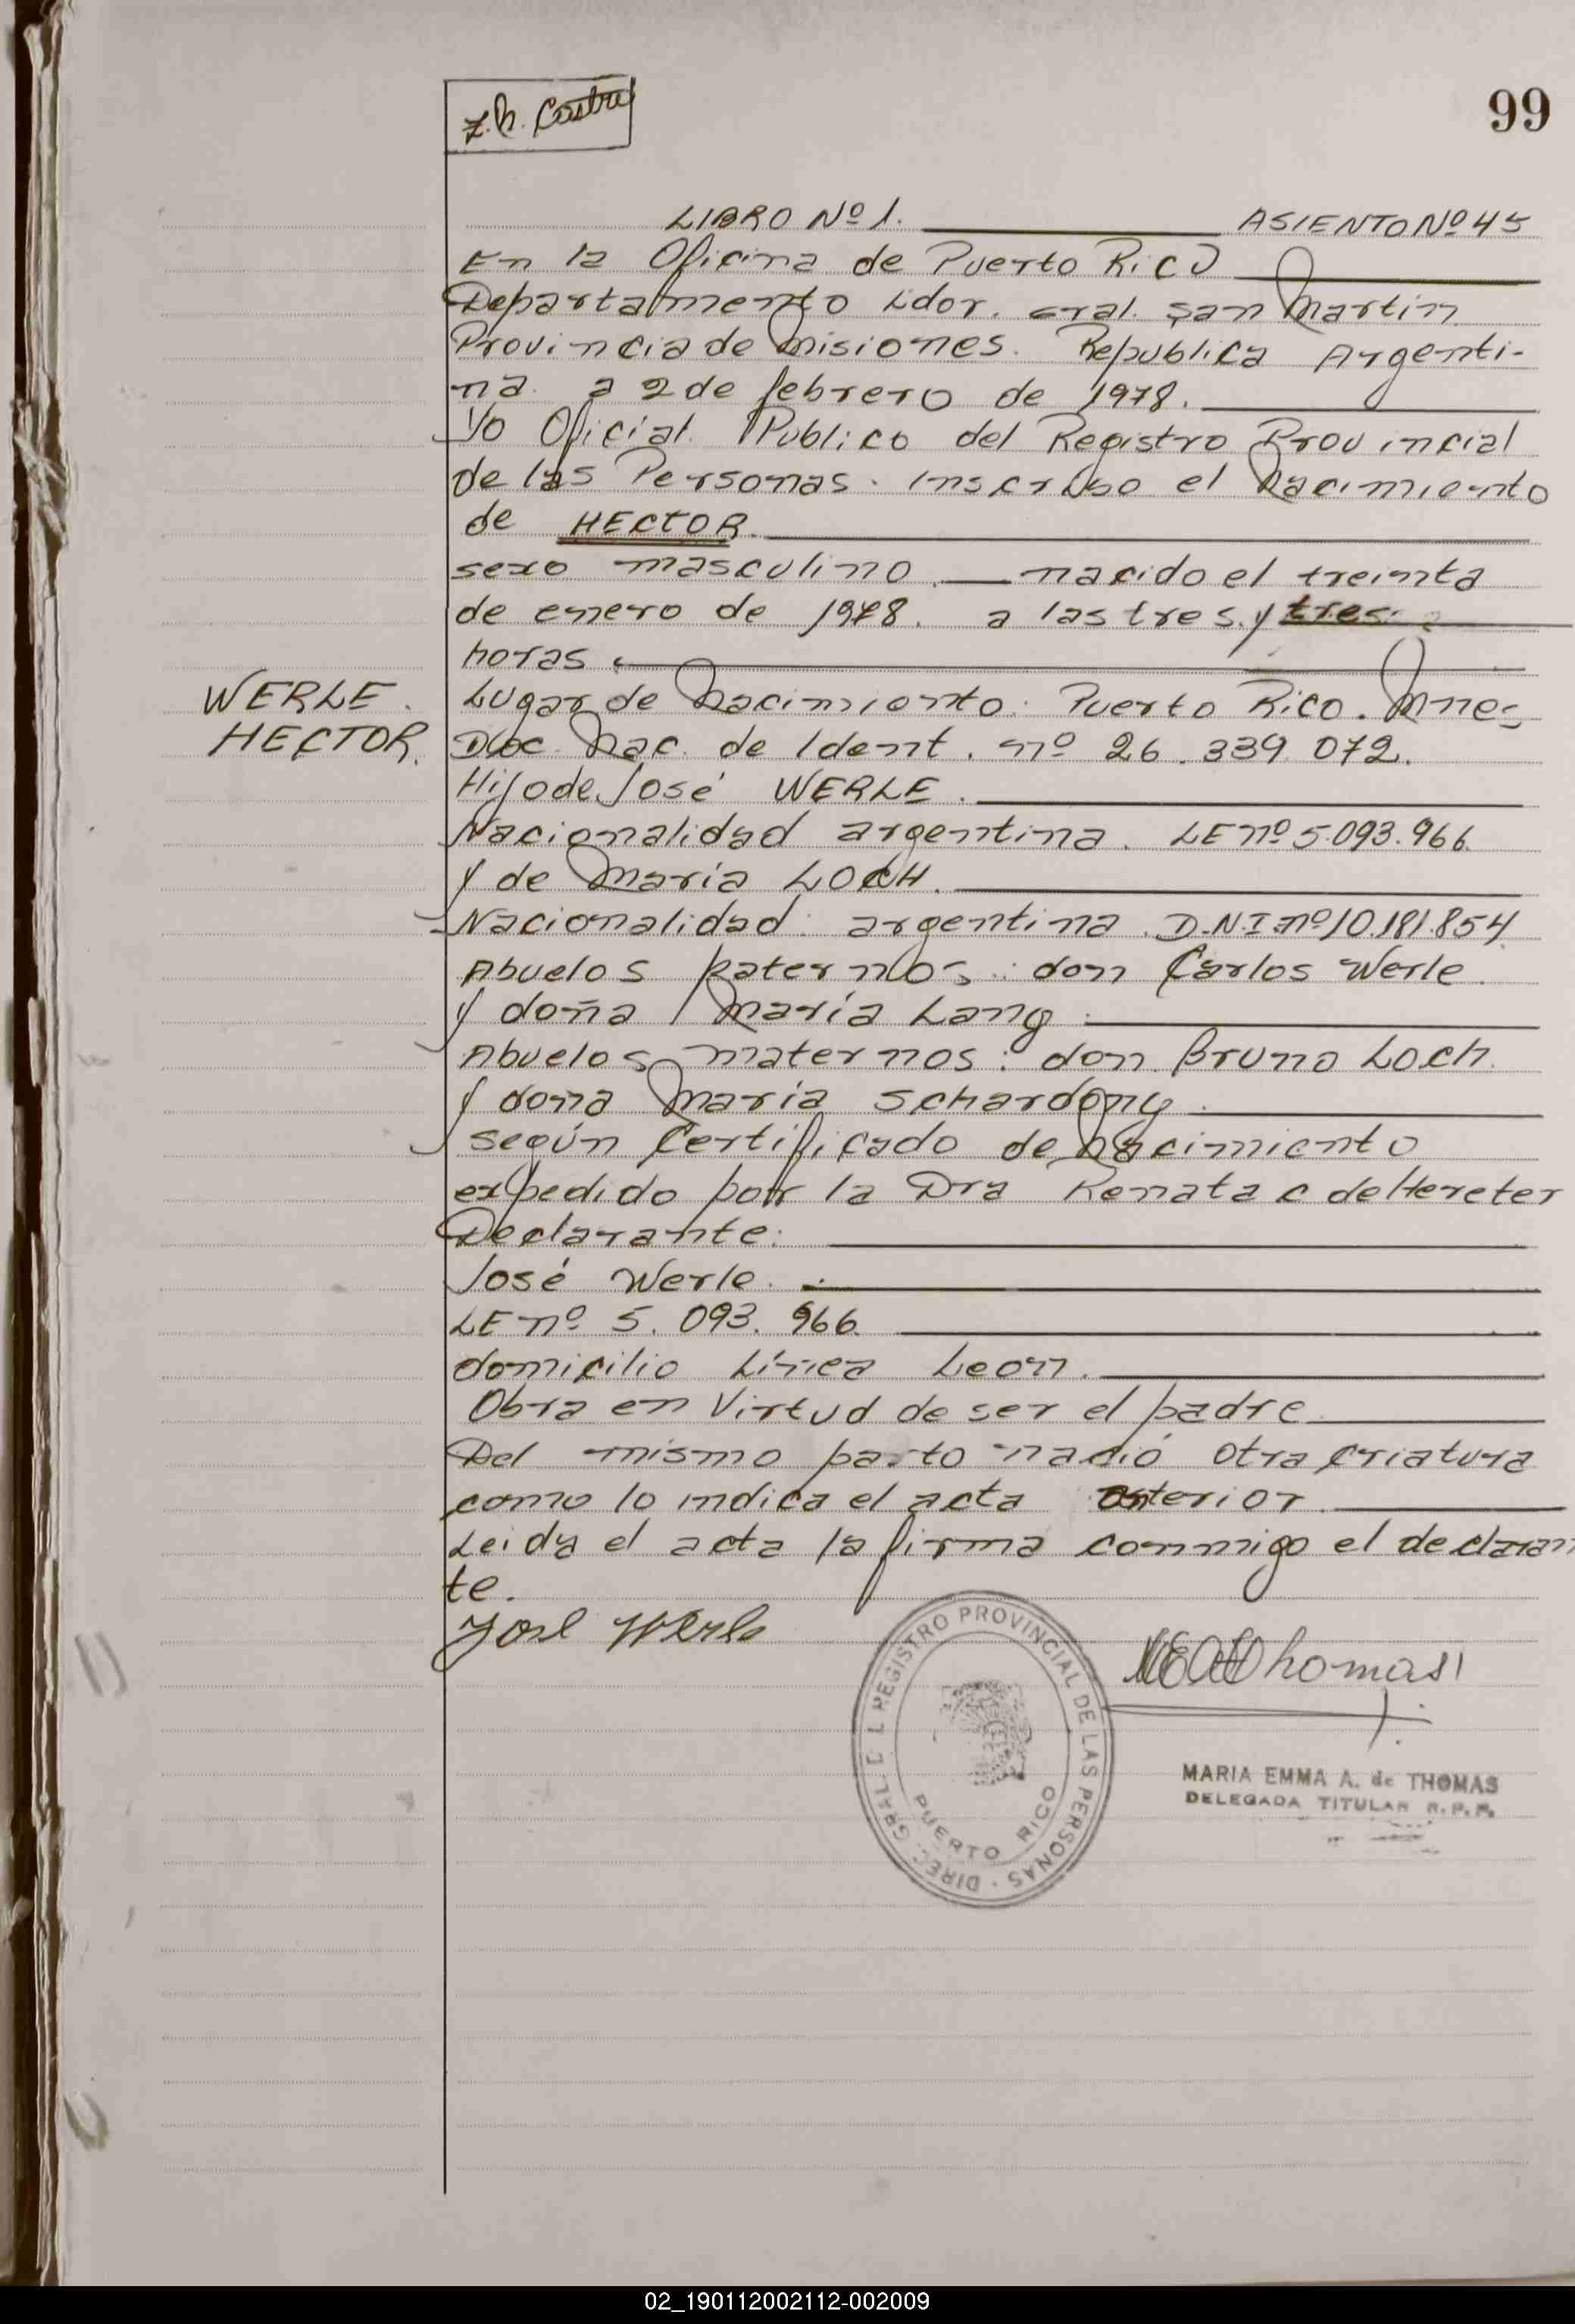 99
Z.h. Castru
LIBRO Nº 1. ASIENTO Nº 45
En la Oficina de Puerto Rico
Departamento Lidor. Gral. San Martin
Provincia de Misiones. Republica Argenti-
na. a 2 de febrero de 1978.
Yo Oficial Publico del Registro Provincial
de las Personas. Inscribo el Nacimiento
de HECTOR.
sexo masculino. nacido el treinta
de enero de 1978. a las tres y tres
horas.
WERLE.
HECTOR.
Lugar de Nacimiento: Puerto Rico. Mnes
Doc. Nac. de Ident. nº 26.339.072.
Hijo de José WERLE.
Nacionalidad argentina. LE nº 5.093.966.
y de María LOCH.
Nacionalidad: argentina. D.N.I nº 10.181.854
Abuelos paternos: don Carlos Werle.
y doña María Lang.
Abuelos maternos: don Bruno Loch.
y doña María Schardong.
según Certificado de Nacimiento
expedido por la Dra Renata C de Hereter
Declarante:
José Werle.
LE nº 5.093.966.
domicilio Línea León.
Obra en Virtud de ser el padre
Del mismo parto nació otra criatura
como lo indica el acta anterior.
Leida el acta la firma conmigo el declaran
te.
José Werle
DIREC. GRAL. DEL REGISTRO PROVINCIAL DE LAS PERSONAS
PUERTO RICO
MEAdThomas
MARIA EMMA A. de THOMAS
DELEGADA TITULAR R.P.P.
02_190112002112-002009